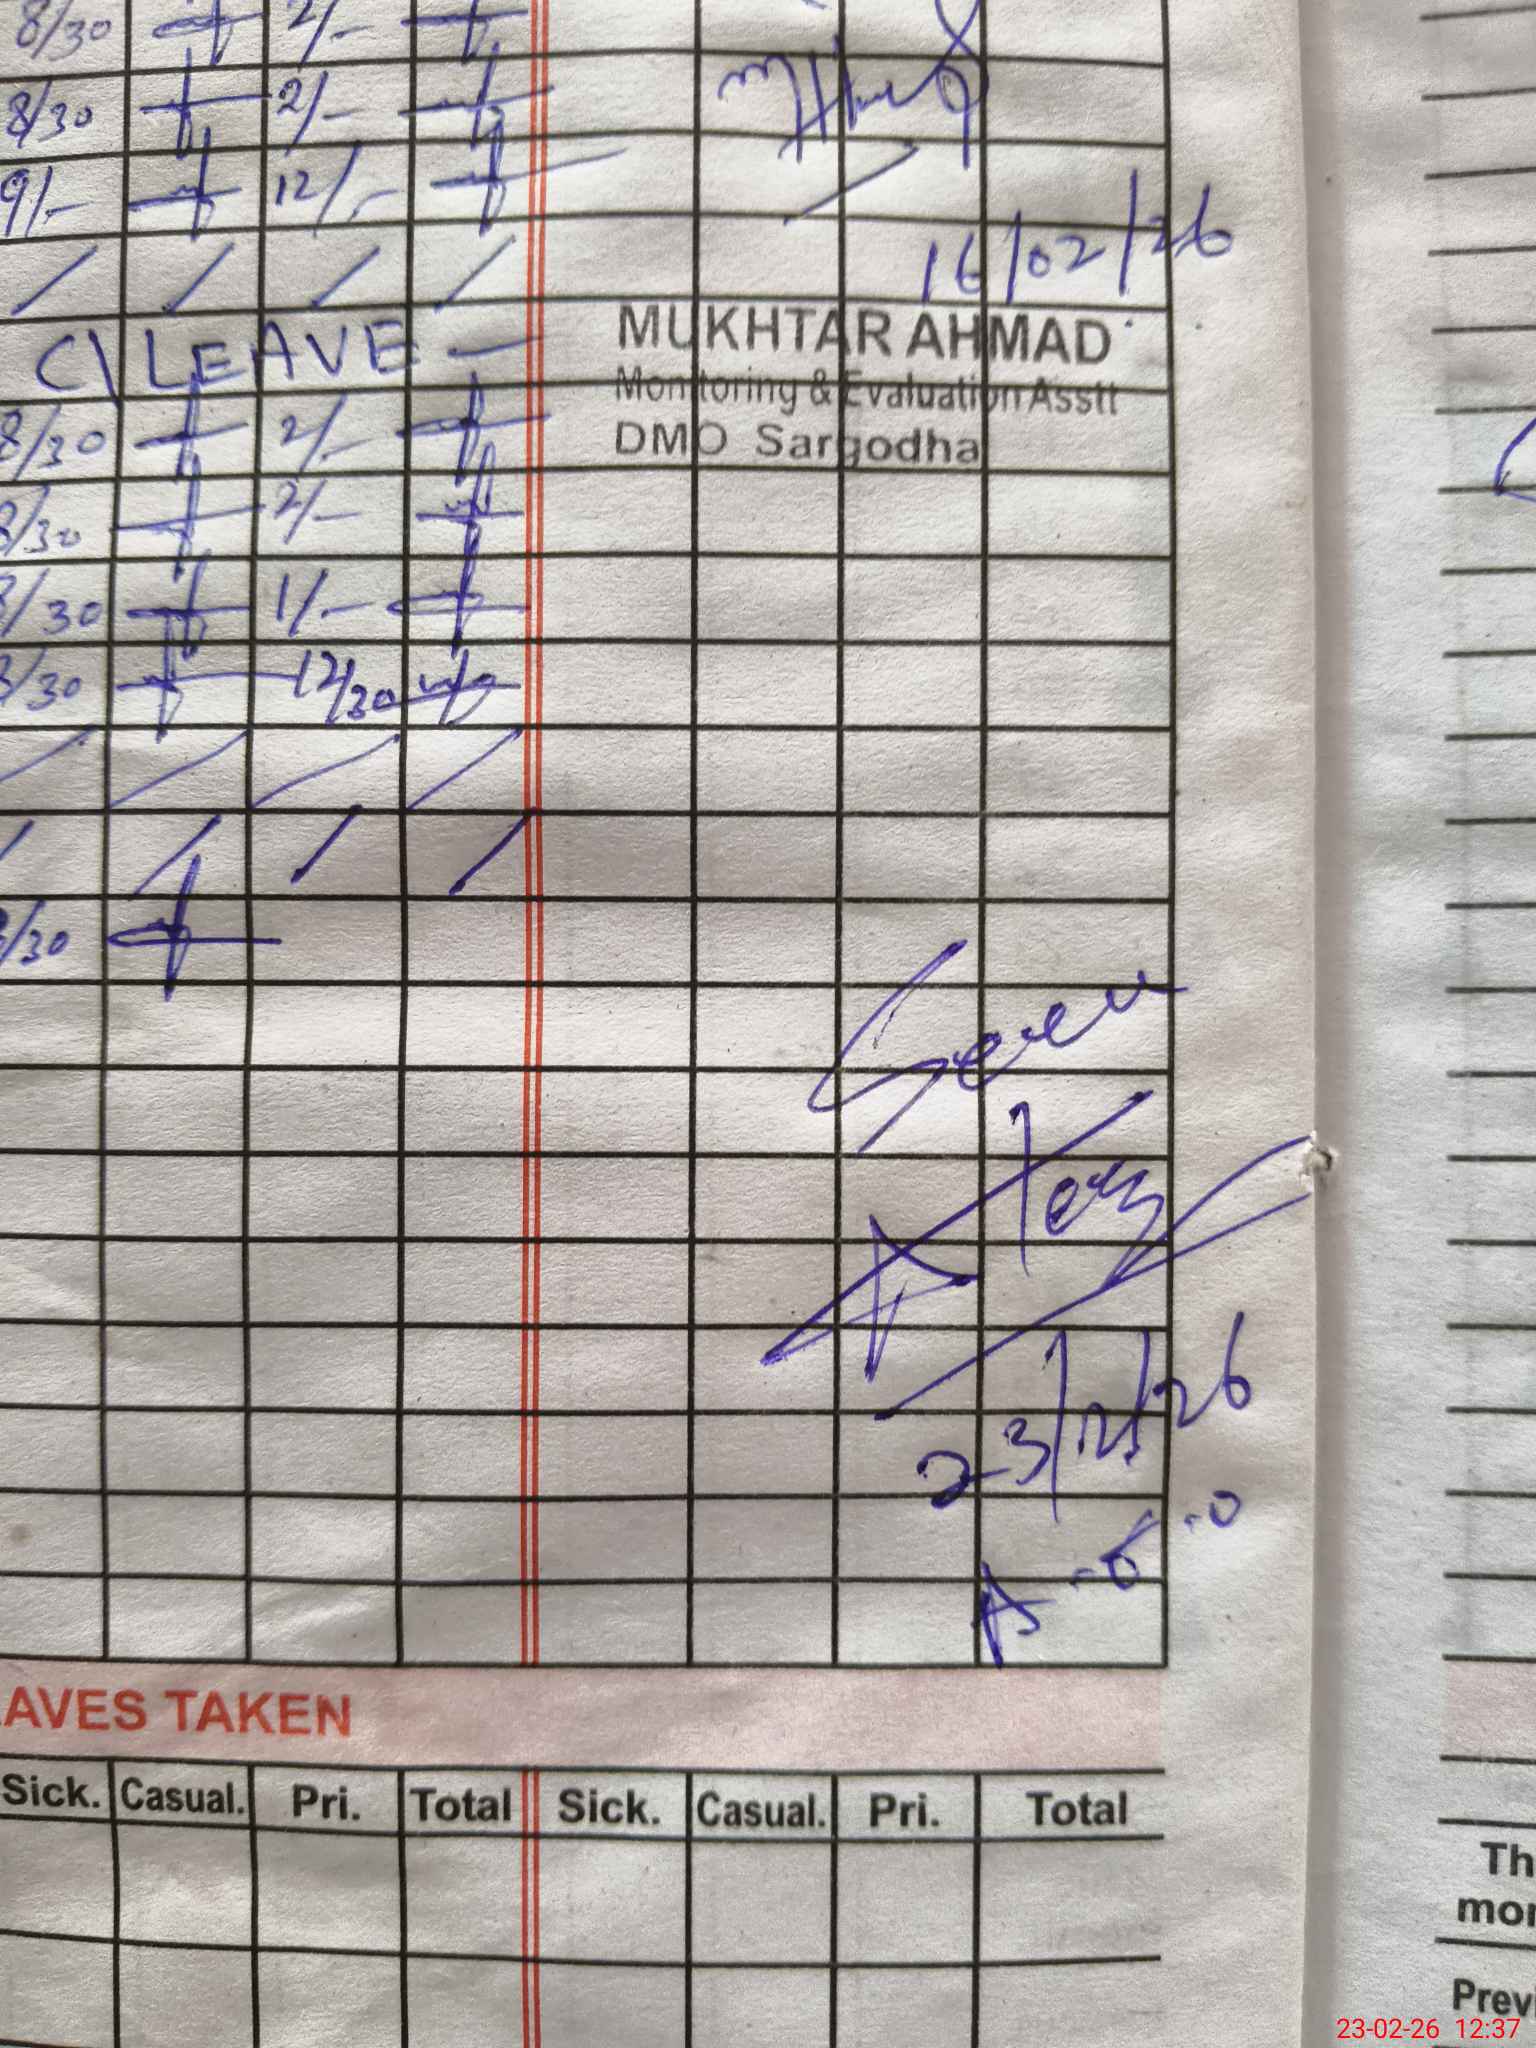 8/30 2/-
8/30 2/-
9/- 12/-
16/02/26
MUKHTAR AHMAD
C\LEAVE
Monitoring & Evaluation Asstt
8/30 2/-
DMO Sargodha
8/30 2/-
8/30 1/-
8/30 12/30
8/30
Seen
23/2/26
AVES TAKEN
Sick. Casual. Pri. Total Sick. Casual. Pri. Total
Th
mon
Previ
23-02-26 12:37